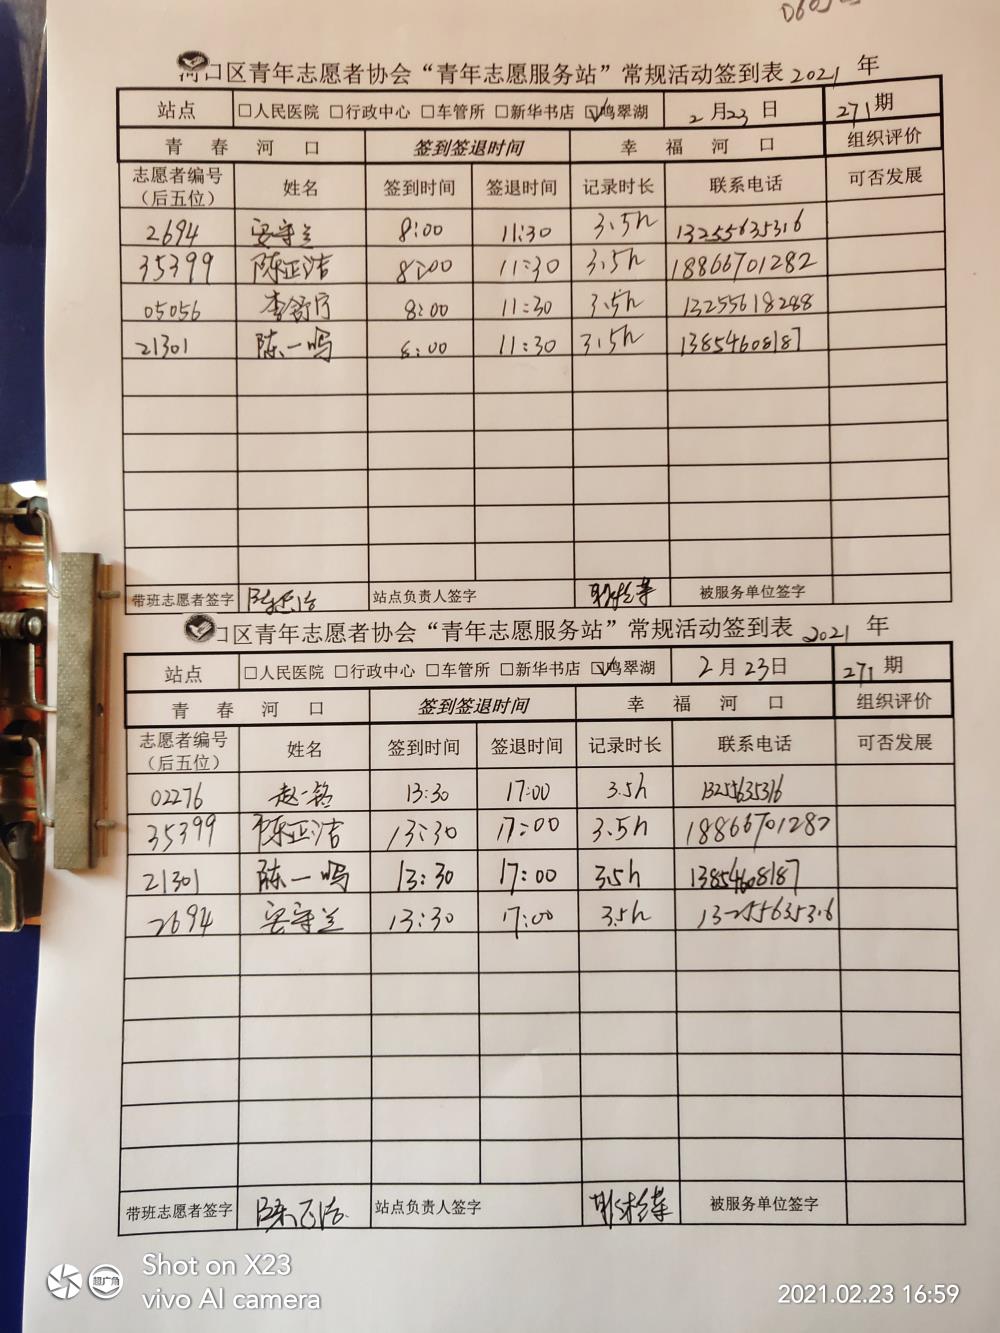 河口区青年志愿者协会“青年志愿服务站”常规活动签到表 2021 年
站点 □人民医院 □行政中心 □车管所 □新华书店 ☑鸣翠湖 2 月 23 日 271 期
青 春 河 口 签到签退时间 幸 福 河 口 组织评价
志愿者编号（后五位） 姓名 签到时间 签退时间 记录时长 联系电话 可否发展
2694 安守兰 8:00 11:30 3.5h 13255635316
35399 陈正洁 8:00 11:30 3.5h 18866701282
05056 李舒 8:00 11:30 3.5h 13255618288
21301 陈一鸣 8:00 11:30 3.5h 13854608187
带班志愿者签字 站点负责人签字 被服务单位签字
口区青年志愿者协会“青年志愿服务站”常规活动签到表 2021 年
站点 □人民医院 □行政中心 □车管所 □新华书店 ☑鸣翠湖 2 月 23 日 271 期
青 春 河 口 签到签退时间 幸 福 河 口 组织评价
志愿者编号（后五位） 姓名 签到时间 签退时间 记录时长 联系电话 可否发展
02276 赵一铭 13:30 17:00 3.5h 13255635316
35399 陈正洁 13:30 17:00 3.5h 18866701282
21301 陈一鸣 13:30 17:00 3.5h 13854608187
2694 安守兰 13:30 17:00 3.5h 13255635316
带班志愿者签字 陈正洁 站点负责人签字 被服务单位签字
Shot on X23
超广角
vivo AI camera
2021.02.23 16:59